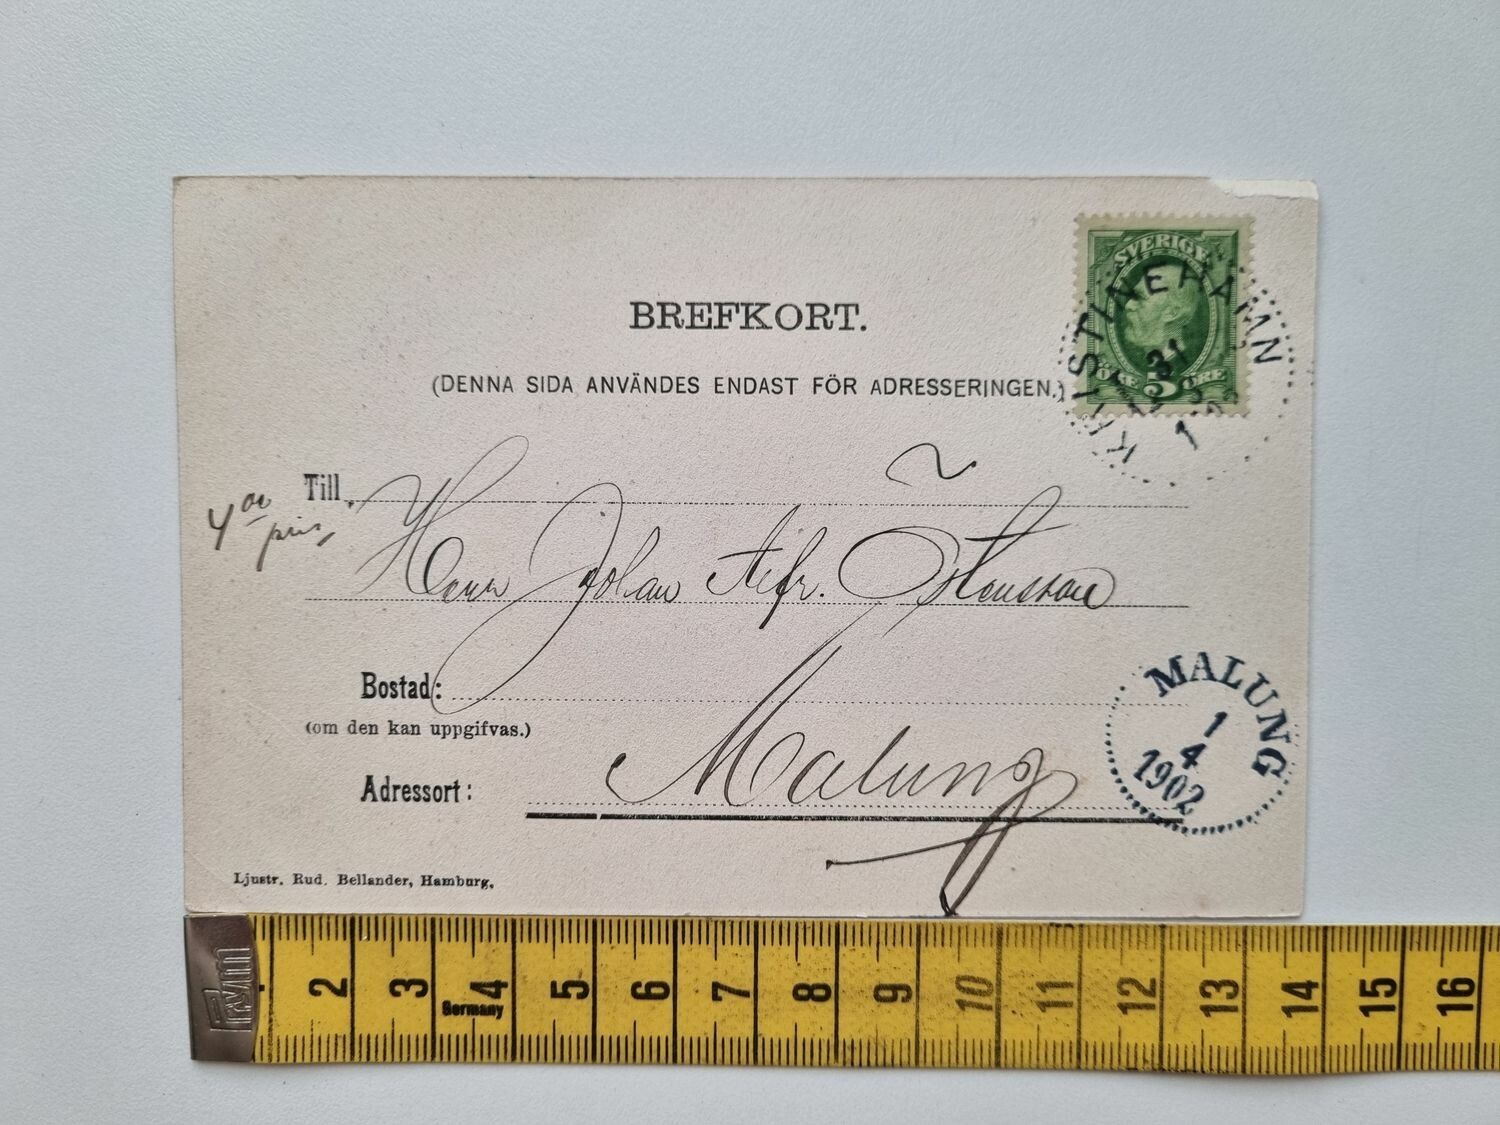 BREFKORT.
(DENNA SIDA ANVÄNDES ENDAST FÖR ADRESSERINGEN.)
SVERIGE
5 ÖRE
KRISTINEHAMN
31
MALUNG
1
4
1902
4 00
pris
Till
Herr Johan Alfr.
Bostad:
(om den kan uppgifvas.)
Adressort:
Malung
Ljustr. Rud. Bellander, Hamburg.
Prym
2 3 4 5 6 7 8 9 10 11 12 13 14 15 16
Germany